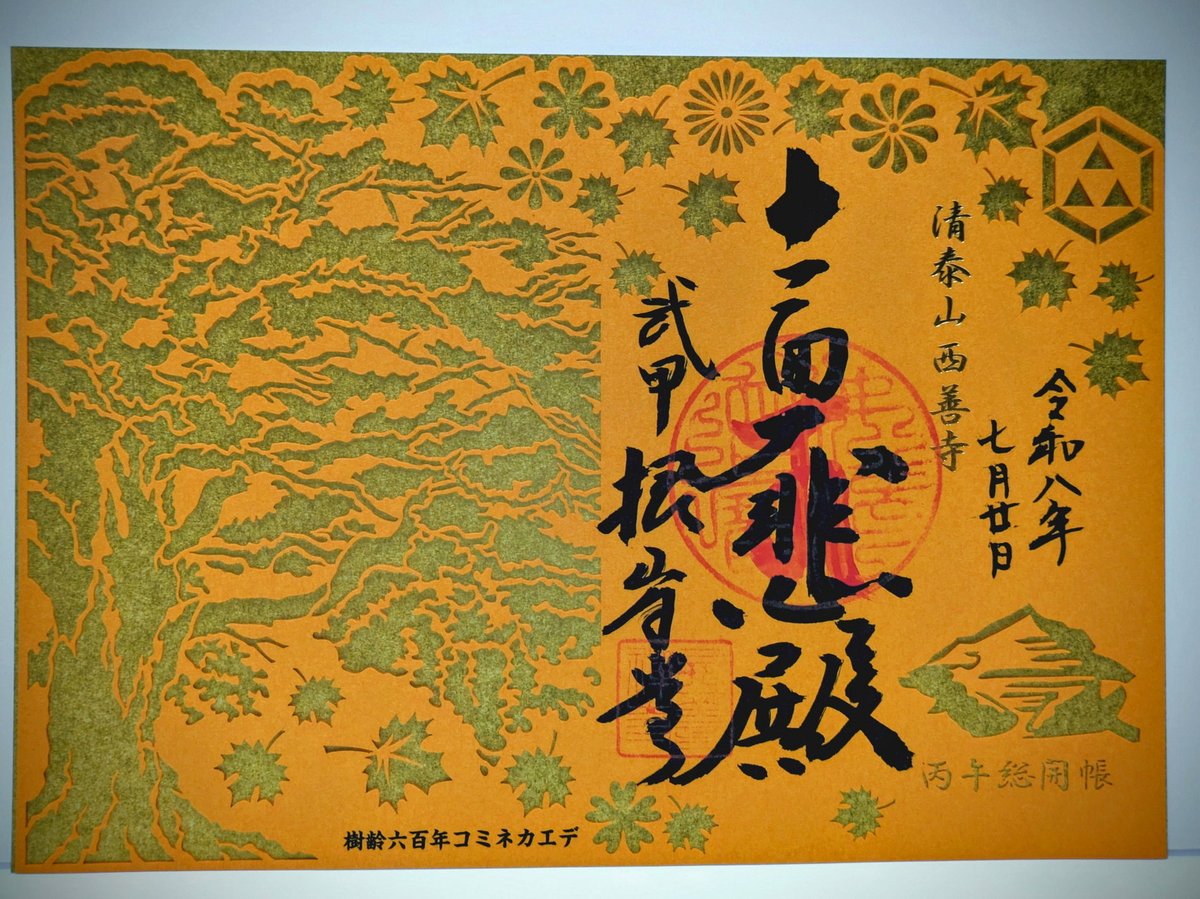 令和八年
七月廿日
清泰山西善寺
十一面大悲殿
武甲
丙午総開帳
樹齢六百年コミネカエデ